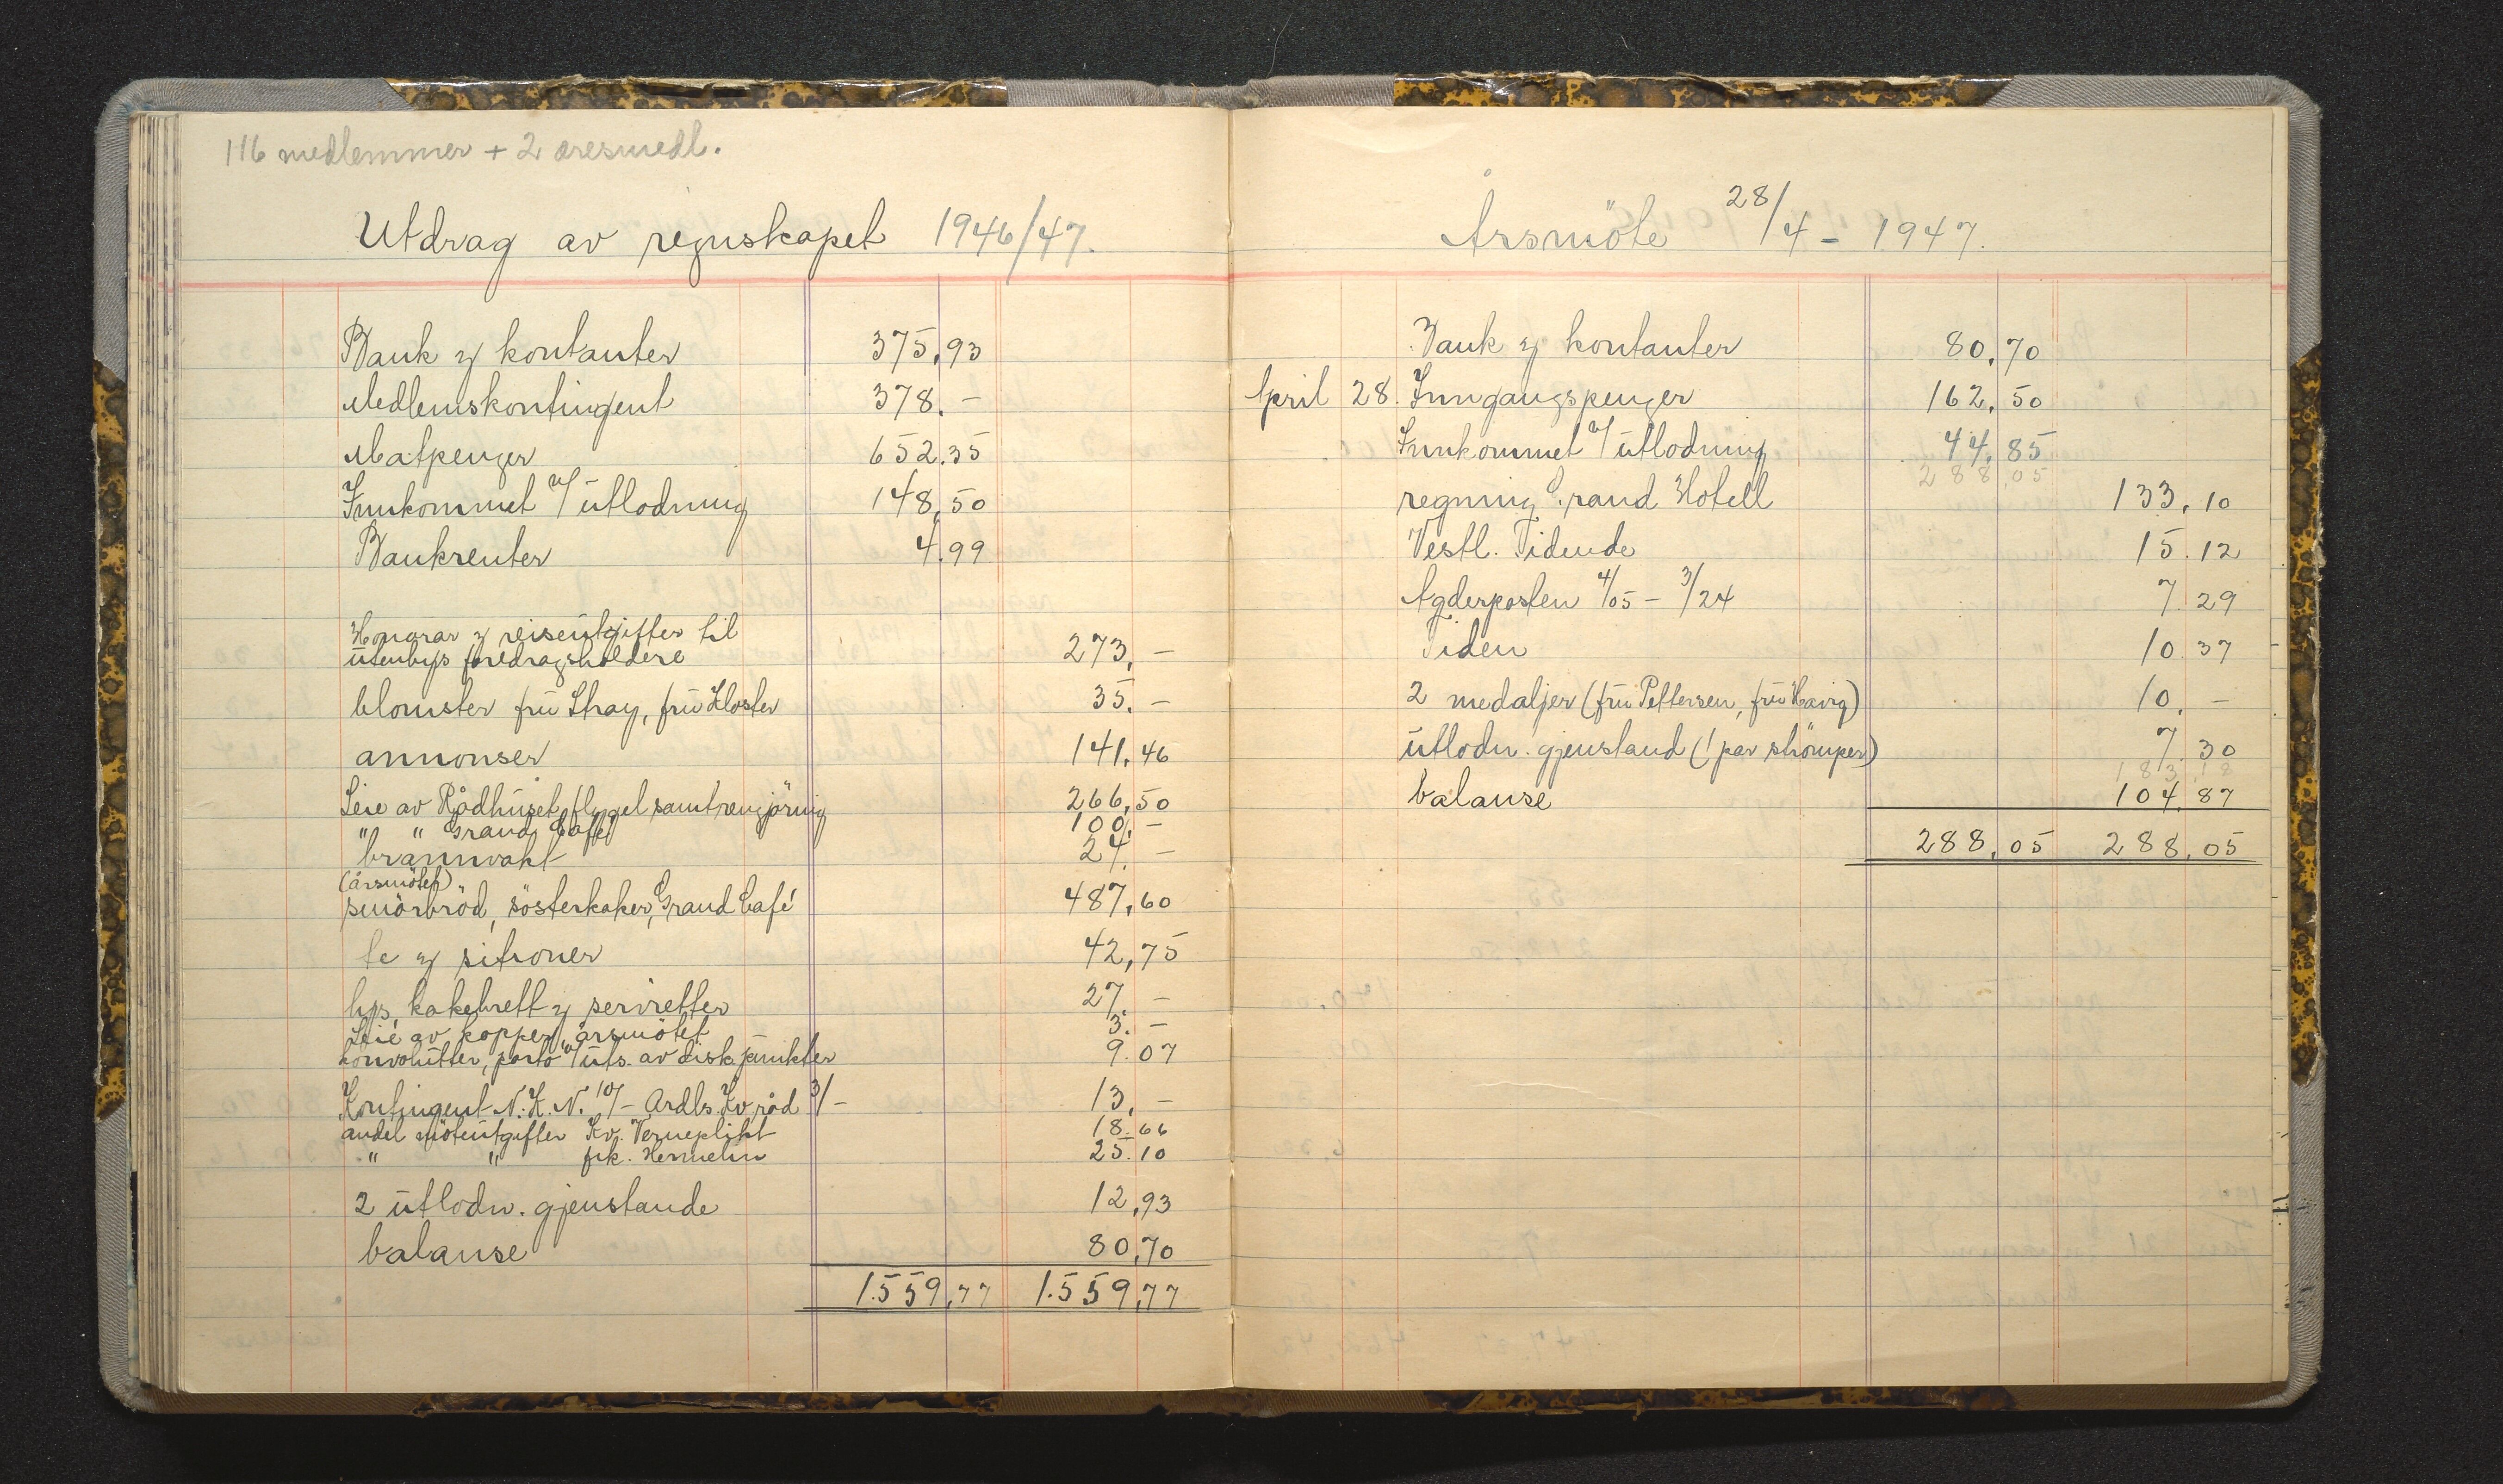 116 medlemmer + 2 æresmedl.
Utdrag av regnskapet 1946/47.
Bank og kontanter 375,93
Medlemskontingent 378.-
Matpenger 652.35
Innkommet v/ utlodning 148,50
Bankrenter 4,99
Honorar og reiseutgifter til
utenbys foredragsholdere 273,-
blomster fru Stray, fru Kloster 35.-
annonser 141,46
Leie av Rådhuset, flygel samt rengjöring 266,50
" " Grand Café 100,-
brannvakt 24.-
(årsmötet)
smörbröd, sösterkaker, Grand Café 487,60
te og sitroner 42,75
lys, kakebrett og servietter 27.-
Leie av kopper, årsmötet 3.-
konvolutter, porto v/ uts. av disk. punkter 9.07
Kontingent N.K.N. 10/- Ardls. Kv.råd 3/- 13,-
andel möteutgifter Kv. Verneplikt 18.66
" " frk. Hermelin 25.10
2 utlodn. gjenstande 12,93
balanse 80,70
1.559,77 1.559,77
Årsmöte 28/4 - 1947.
Bank og kontanter 80,70
April 28. Inngangspenger 162,50
Innkommet v/ utlodning 44,85
288,05
regning Grand Hotell 133,10
Vestl. Tidende 15.12
Agderposten 4/05 - 3/24 7.29
Tiden 10.37
2 medaljer (fru Pettersen, fru Havig) 10.-
utlodn. gjenstand (1 par strömper) 7.30
183,18
balanse 104,87
288,05 288,05